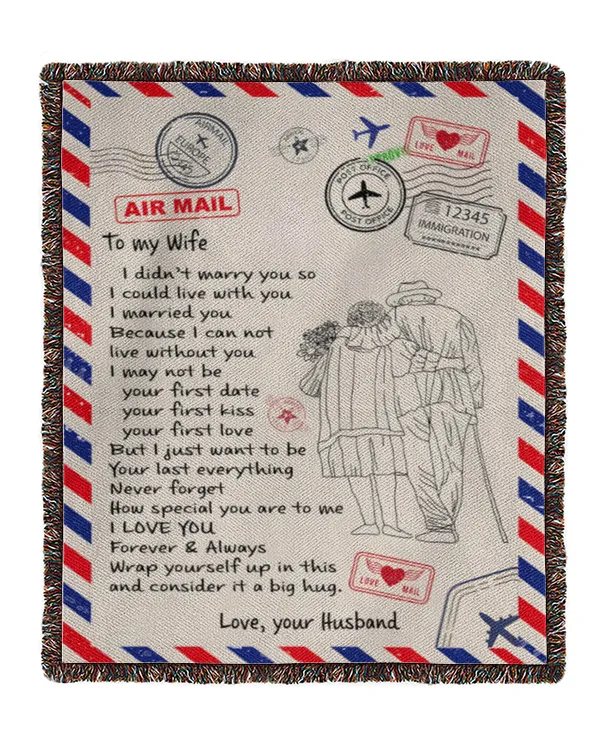 AIRMAIL
EUROPE
LOVE MAIL
POST OFFICE
POST OFFICE
12345
IMMIGRATION
AIR MAIL
To my Wife
I didn't marry you so
I could live with you
I married you
Because I can not
live without you
I may not be
your first date
your first kiss
your first love
But I just want to be
Your last everything
Never forget
How special you are to me
I LOVE YOU
Forever & Always
Wrap yourself up in this
and consider it a big hug.
LOVE MAIL
Love, your Husband